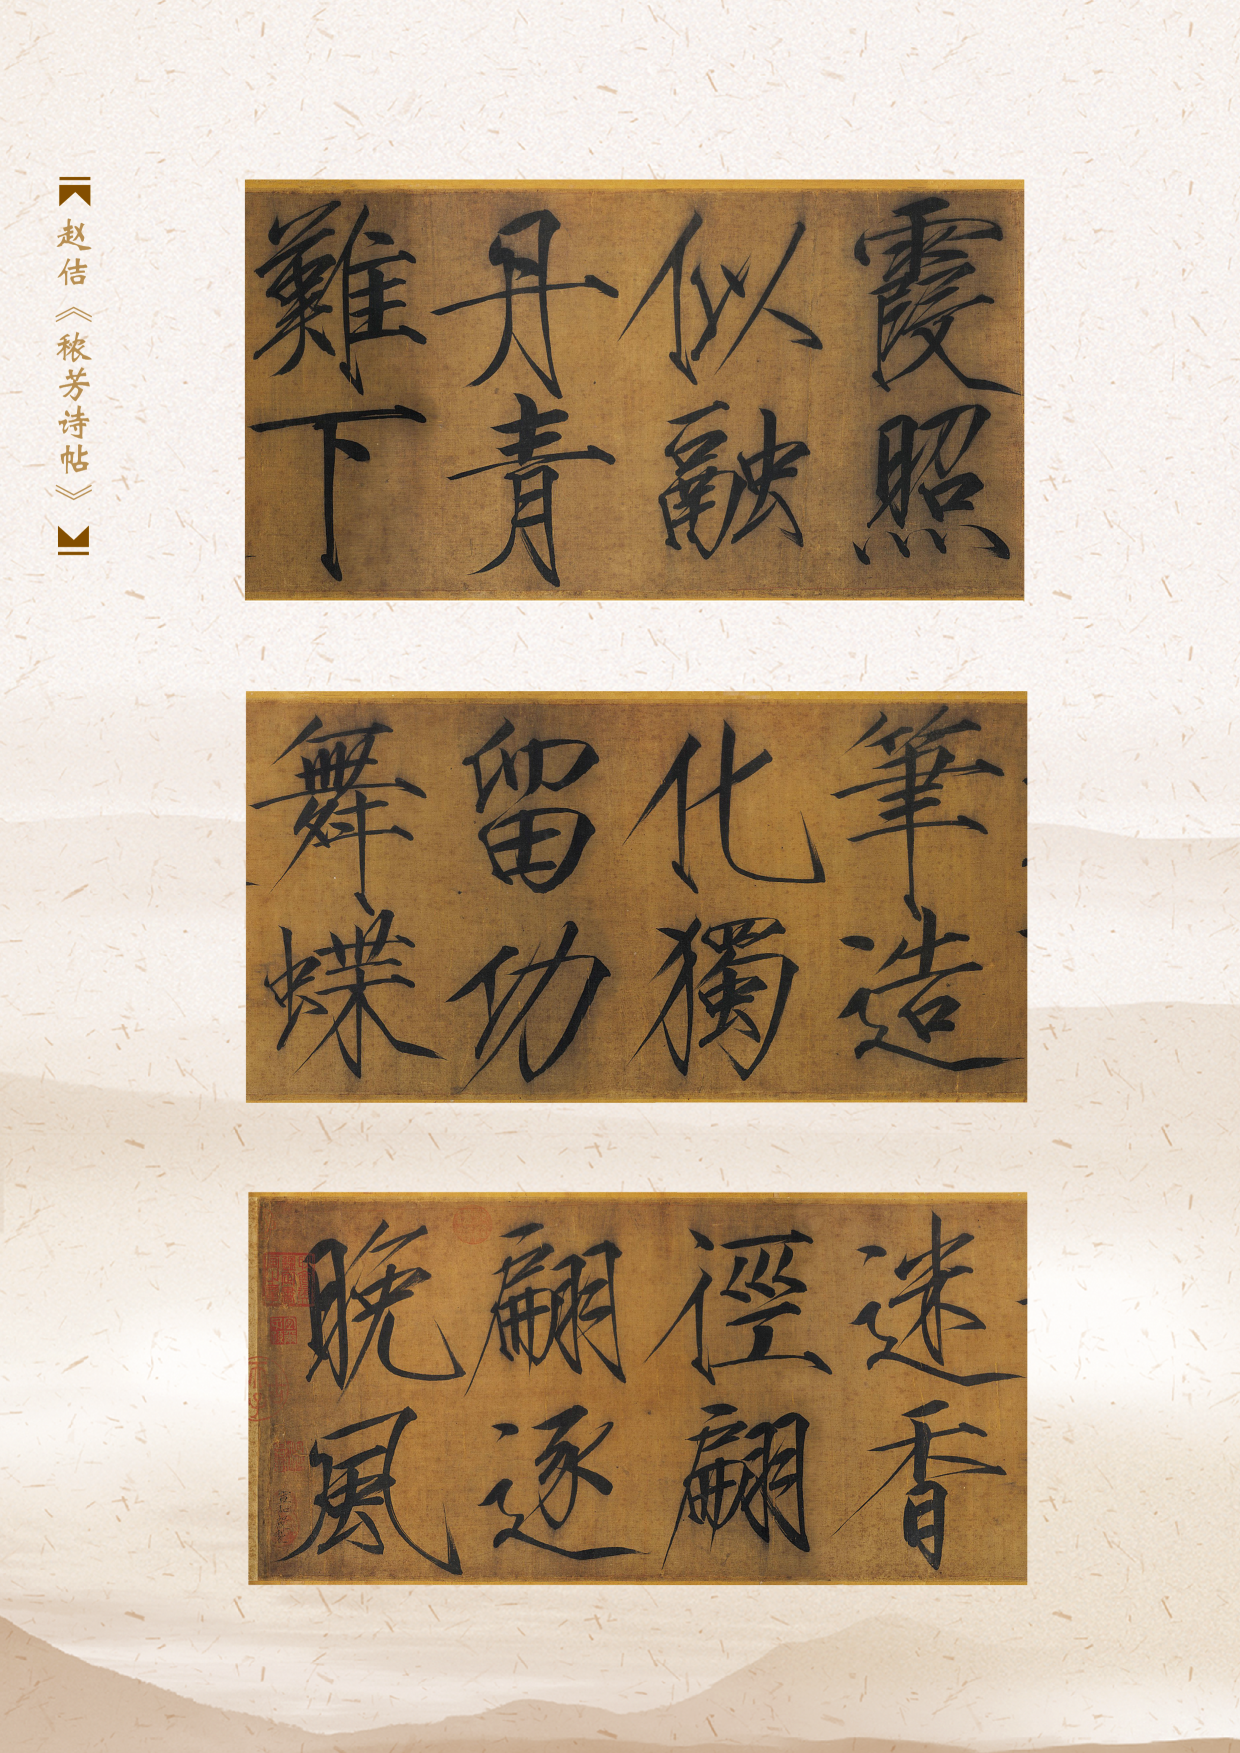 赵佶《秾芳诗帖》
霞照
似融
丹青
難下
筆造
化獨
留功
舞蝶
迷香
徑翩
翩逐
晚風